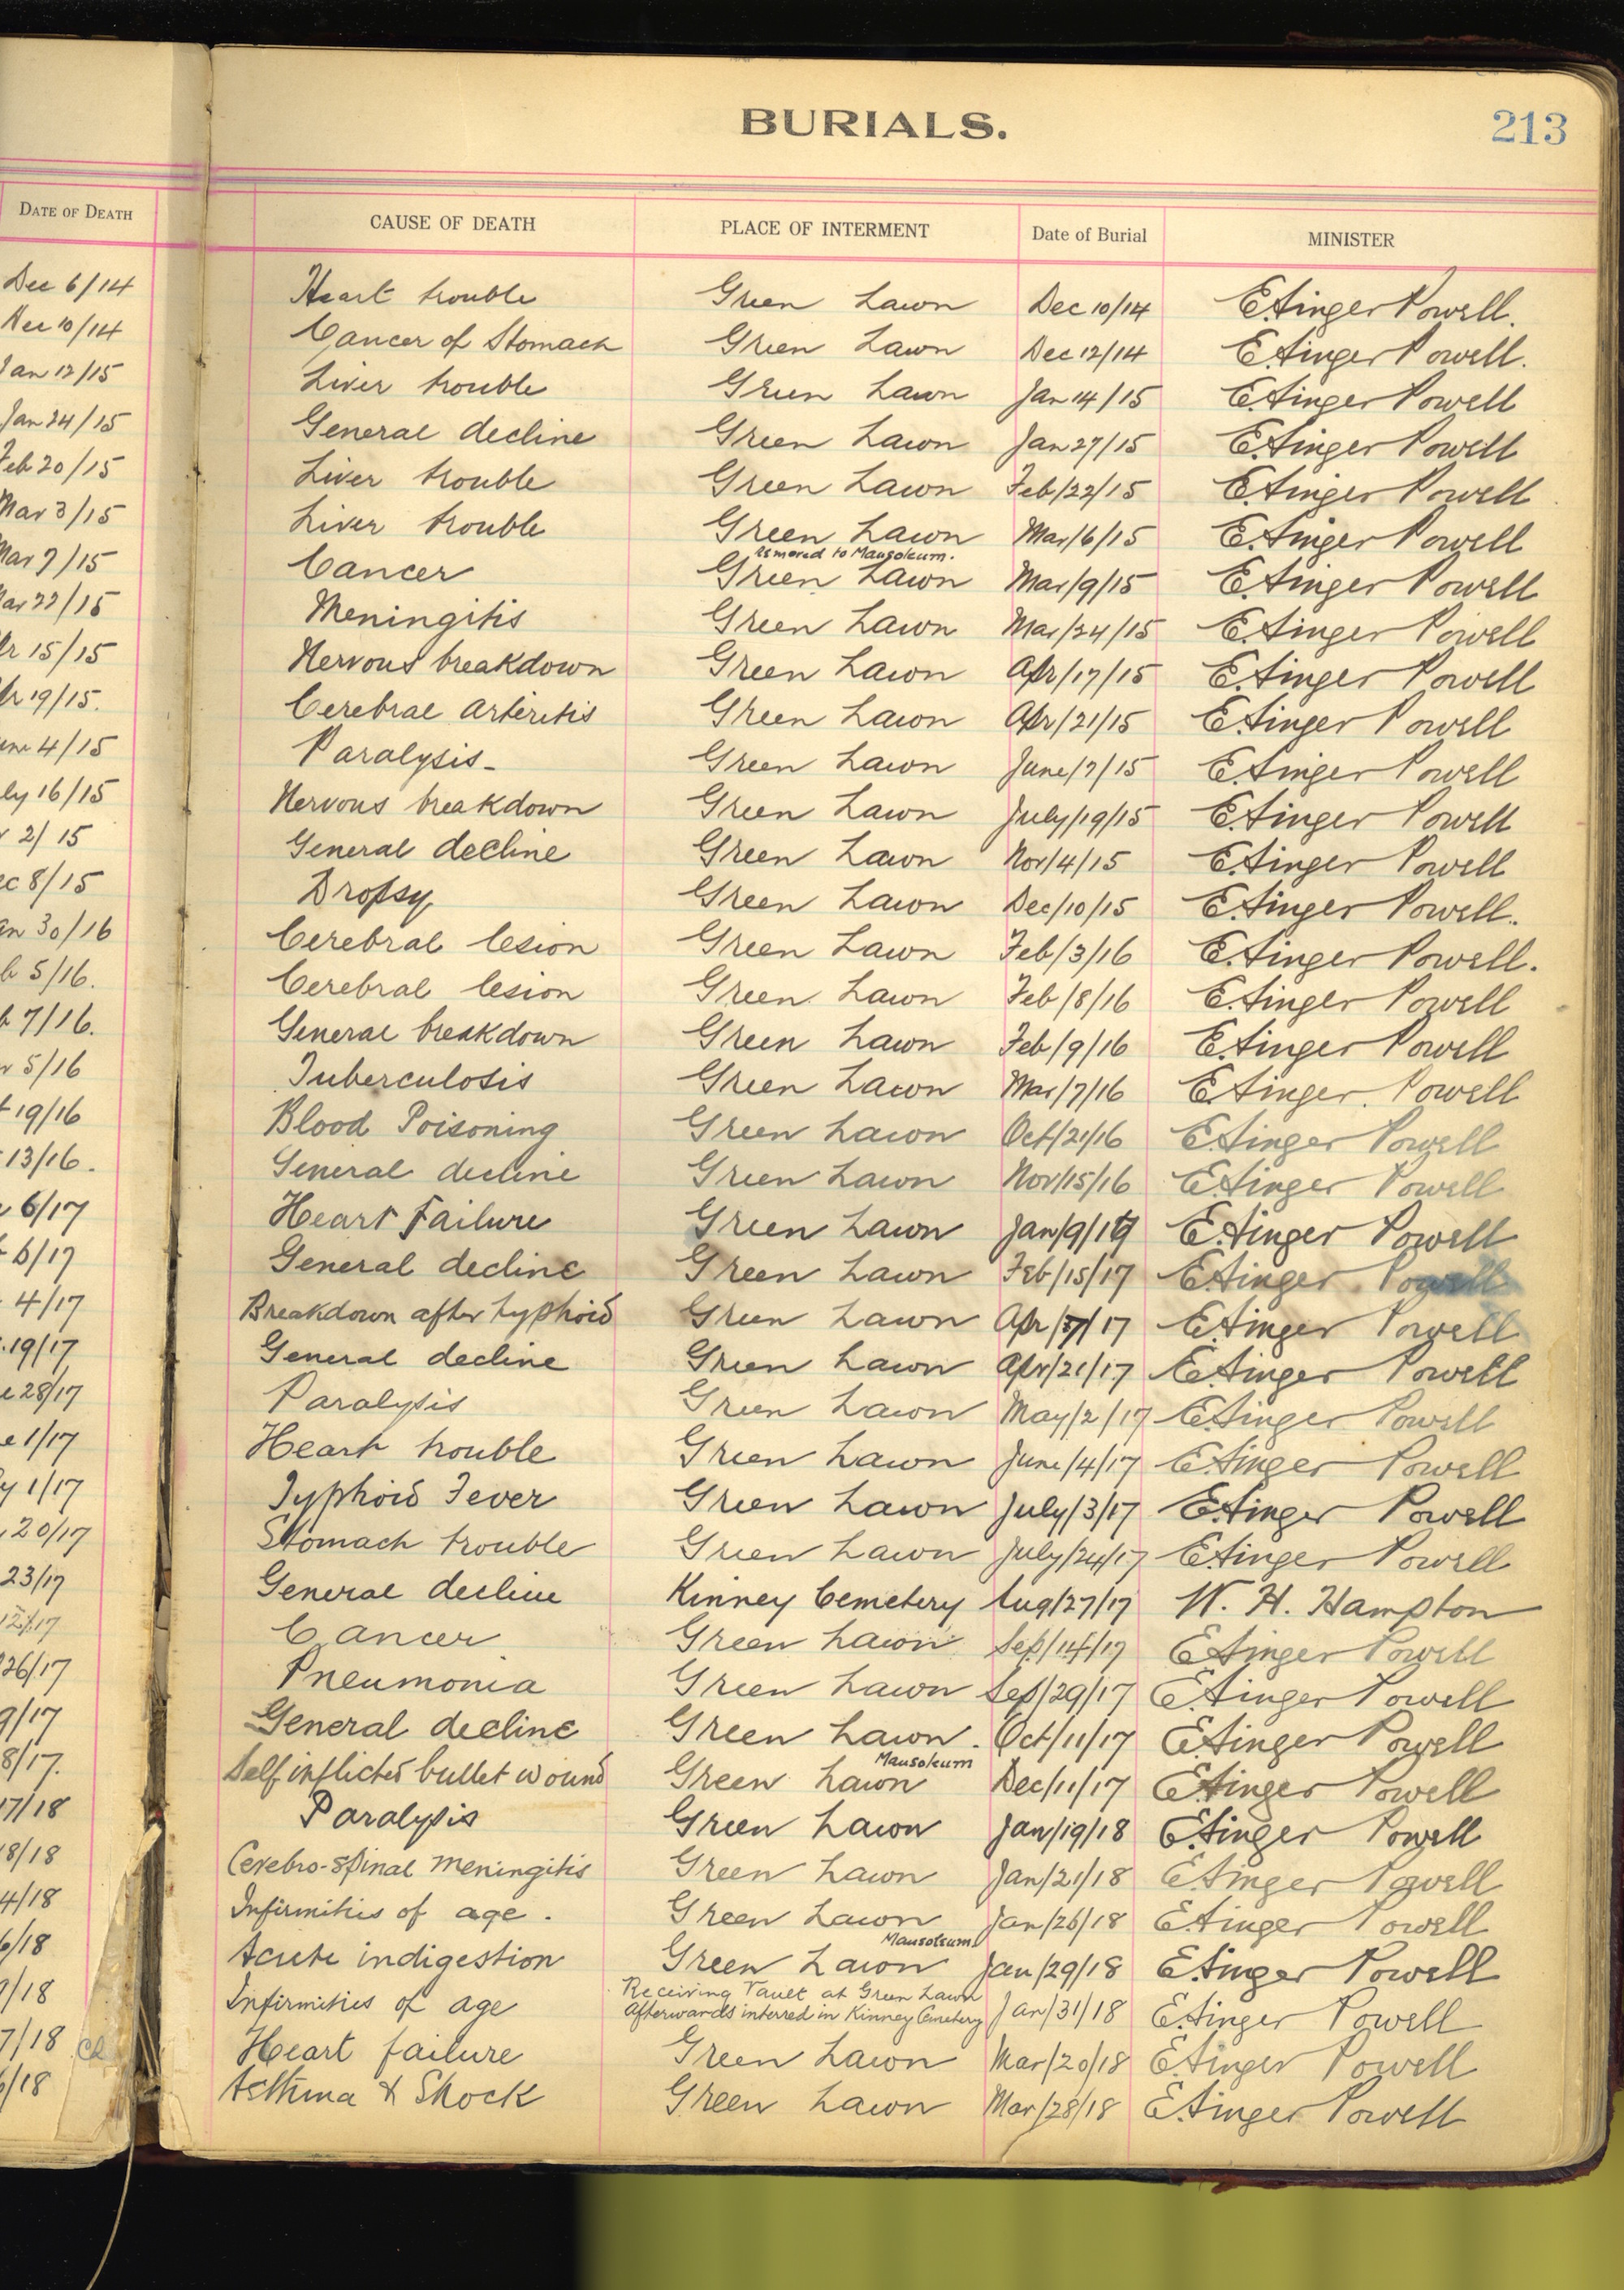 BURIALS.
213
DATE OF DEATH CAUSE OF DEATH PLACE OF INTERMENT Date of Burial MINISTER
Dec 6/14 Heart trouble Green Lawn Dec 10/14 E. Ainger Powell.
Dec 10/14 Cancer of Stomach Green Lawn Dec 12/14 E. Ainger Powell.
Jan 12/15 Liver trouble Green Lawn Jan 14/15 E. Ainger Powell
Jan 24/15 General decline Green Lawn Jan 27/15 E. Ainger Powell
Feb 20/15 Liver trouble Green Lawn Feb/22/15 E. Ainger Powell
Mar 3/15 Liver trouble Green Lawn Mar/6/15 E. Ainger Powell
removed to Mausoleum.
Mar 7/15 Cancer Green Lawn Mar/9/15 E. Ainger Powell
Mar 22/15 Meningitis Green Lawn Mar/24/15 E. Ainger Powell
r 15/15 Nervous breakdown Green Lawn Apr/17/15 E. Ainger Powell
r 19/15. Cerebral arteritis Green Lawn Apr/21/15 E. Ainger Powell
une 4/15 Paralysis- Green Lawn June/7/15 E. Ainger Powell
ly 16/15 Nervous breakdown Green Lawn July/19/15 E. Ainger Powell
2/15 General decline Green Lawn Nov/4/15 E. Ainger Powell
ec 8/15 Dropsy Green Lawn Dec/10/15 E. Ainger Powell.
an 30/16 Cerebral lesion Green Lawn Feb/3/16 E. Ainger Powell.
b 5/16. Cerebral lesion Green Lawn Feb/8/16 E. Ainger Powell
b 7/16. General breakdown Green Lawn Feb/9/16 E. Ainger Powell
r 5/16 Tuberculosis Green Lawn Mar/7/16 E. Ainger Powell
t 19/16 Blood Poisoning Green Lawn Oct/21/16 E. Ainger Powell
13/16. General decline Green Lawn Nov/15/16 E. Ainger Powell
6/17 Heart Failure Green Lawn Jan/9/17 E. Ainger Powell
General decline Green Lawn Feb/15/17 E. Ainger Powell
4/17 Breakdown after typhoid Green Lawn Apr/7/17 E. Ainger Powell
19/17 General decline Green Lawn Apr/21/17 E. Ainger Powell
28/17 Paralysis Green Lawn May/2/17 E. Ainger Powell
e 1/17 Heart trouble Green Lawn June/4/17 E. Ainger Powell
y 1/17 Typhoid Fever Green Lawn July/3/17 E. Ainger Powell
20/17 Stomach trouble Green Lawn July/24/17 E. Ainger Powell
23/17 General decline Kinney Cemetery Aug/27/17 W. H. Hampton
Cancer Green Lawn Sep/14/17 E. Ainger Powell
26/17 Pneumonia Green Lawn Sep/29/17 E. Ainger Powell
9/17 General decline Green Lawn. Oct/11/17 E. Ainger Powell
Mausoleum
8/17. Self inflicted bullet wound Green Lawn Dec/11/17 E. Ainger Powell
17/18 Paralysis Green Lawn Jan/19/18 E. Ainger Powell
18/18 Cerebro-spinal meningitis Green Lawn Jan/21/18 E. Ainger Powell
4/18 Infirmities of age. Green Lawn Jan/26/18 E. Ainger Powell
Mausoleum
6/18 Acute indigestion Green Lawn Jan/29/18 E. Ainger Powell
Receiving Vault at Green Lawn
9/18 Infirmities of age Afterwards interred in Kinney Cemetery Jan/31/18 E. Ainger Powell
7/18 Heart failure Green Lawn Mar/20/18 E. Ainger Powell
6/18 Asthma & Shock Green Lawn Mar/28/18 E. Ainger Powell